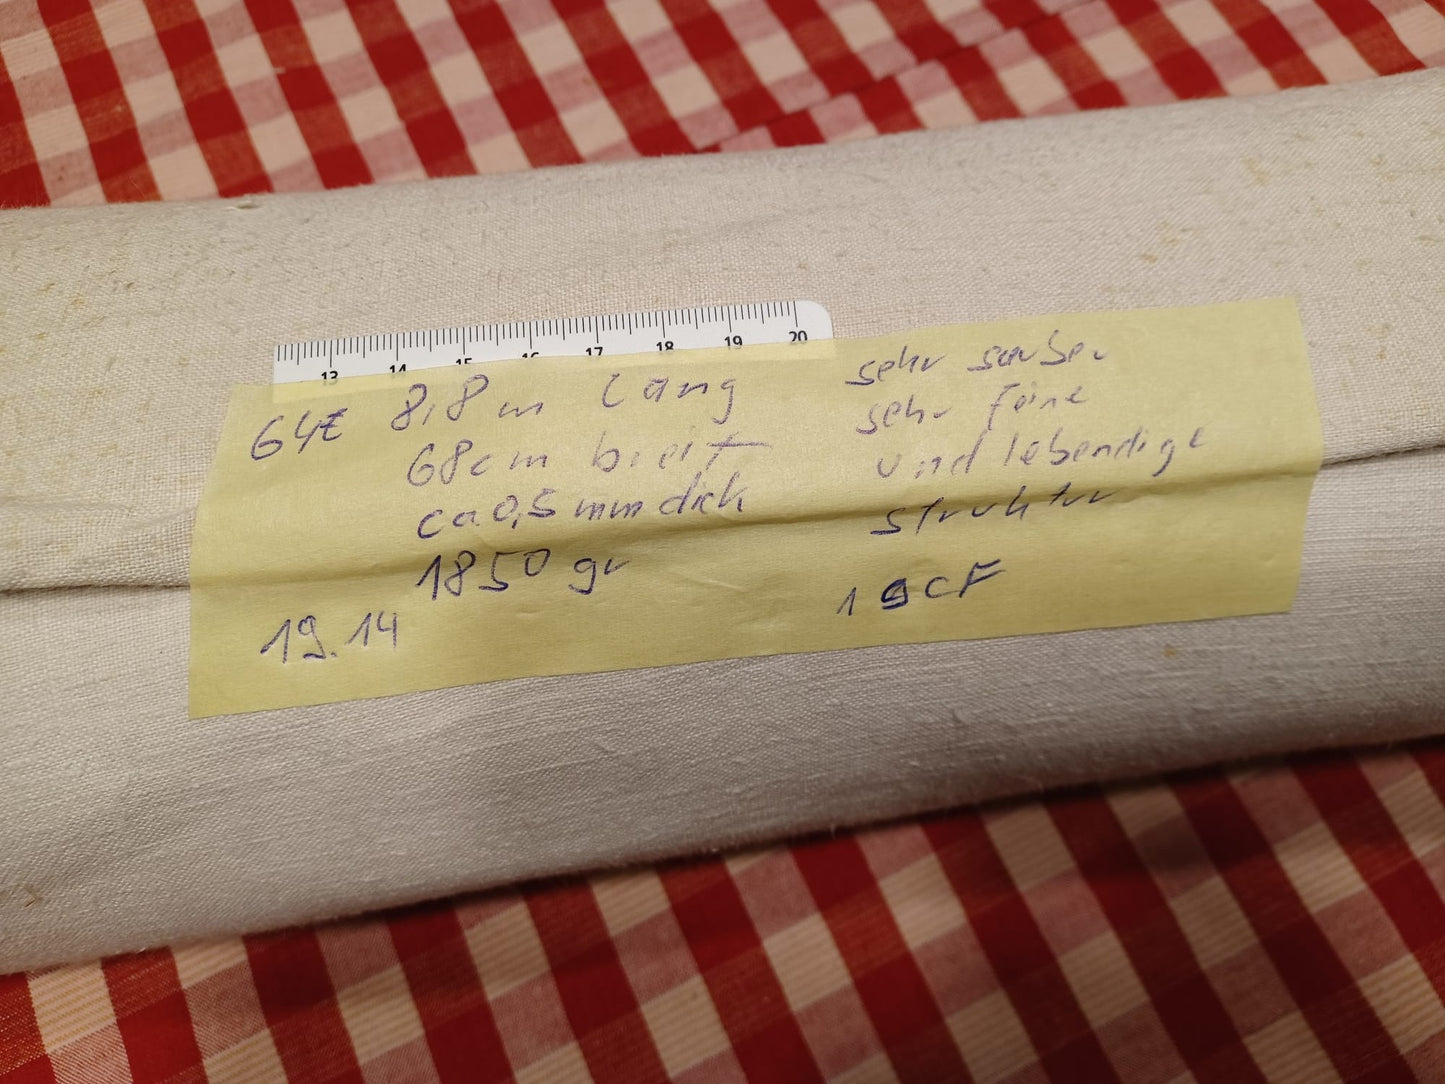 13 14 15 16 17 18 19 20
64Z 8,8 m lang
68cm breit
ca 0,5 mm dick
1850 gr
19.14
sehr sauber
sehr feine
und lebendige
struktur
19CF